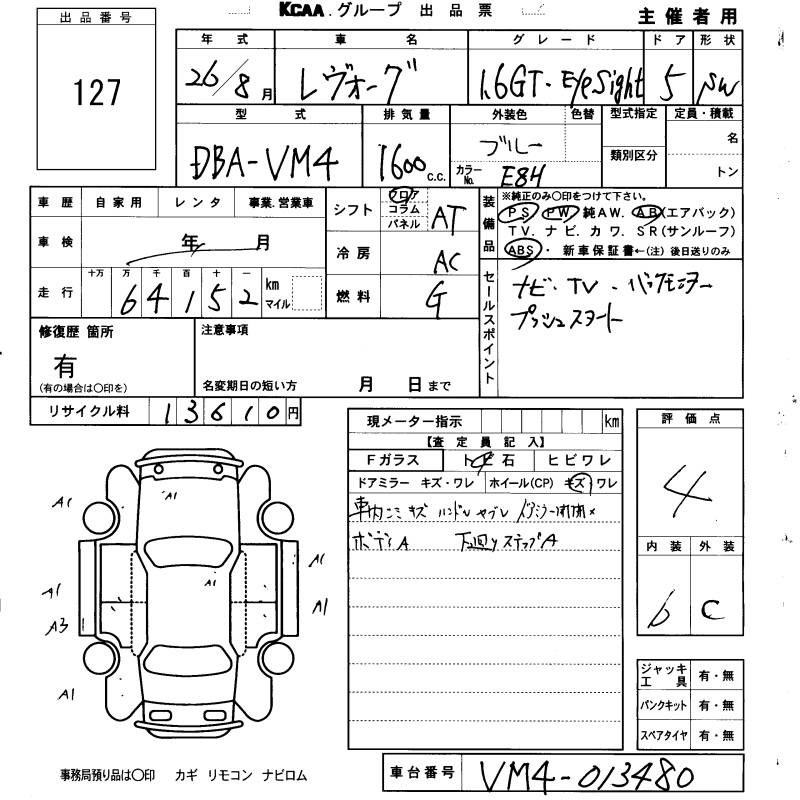 KCAA グループ 出品票
主催者用
出品番号
127
年式 車名 グレード ドア 形状
26/8月 レヴォーグ 1.6GT・EyeSight 5 SW
型式 排気量 外装色 色替 型式指定 定員・積載
DBA-VM4 1600 c.c. ブルー 類別区分 名
カラーNo. E8H トン
車歴 自家用 レンタ 事業.営業車
シフト フロア コラム パネル AT
装備品 ※純正のみ〇印をつけて下さい。
PS PW 純AW. AB(エアバック)
TV. ナビ. カワ. SR(サンルーフ)
ABS・新車保証書←(注)後日送りのみ
車検 年 月
冷房 AC
走行 十万 万 千 百 十 一 km マイル
64152
燃料 G
セールスポイント
ナビ・TV・バックモニター
プッシュスタート
修復歴 箇所 注意事項
有
(有の場合は〇印を) 名変期日の短い方 月 日まで
リサイクル料 13610円
現メーター指示 km
【査定員記入】
Fガラス トビ石 ヒビワレ
ドアミラー キズ・ワレ ホイール(CP) キズ ワレ
車内 キズ ハンドル
ボディA 下回り ステップA
評価点
4
内装 外装
b C
A1
A1
A1
A1
A1
A1
A3
A1
ジャッキ工具 有・無
パンクキット 有・無
スペアタイヤ 有・無
事務局預り品は〇印 カギ リモコン ナビロム
車台番号 VM4-013480